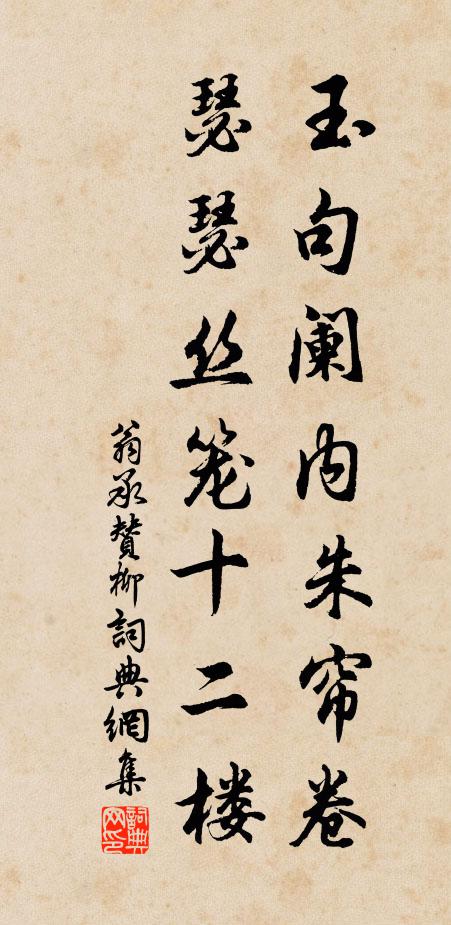 玉句阑内朱帘卷
瑟瑟丝笼十二楼
翁承赞柳詞典網集
詞典网印